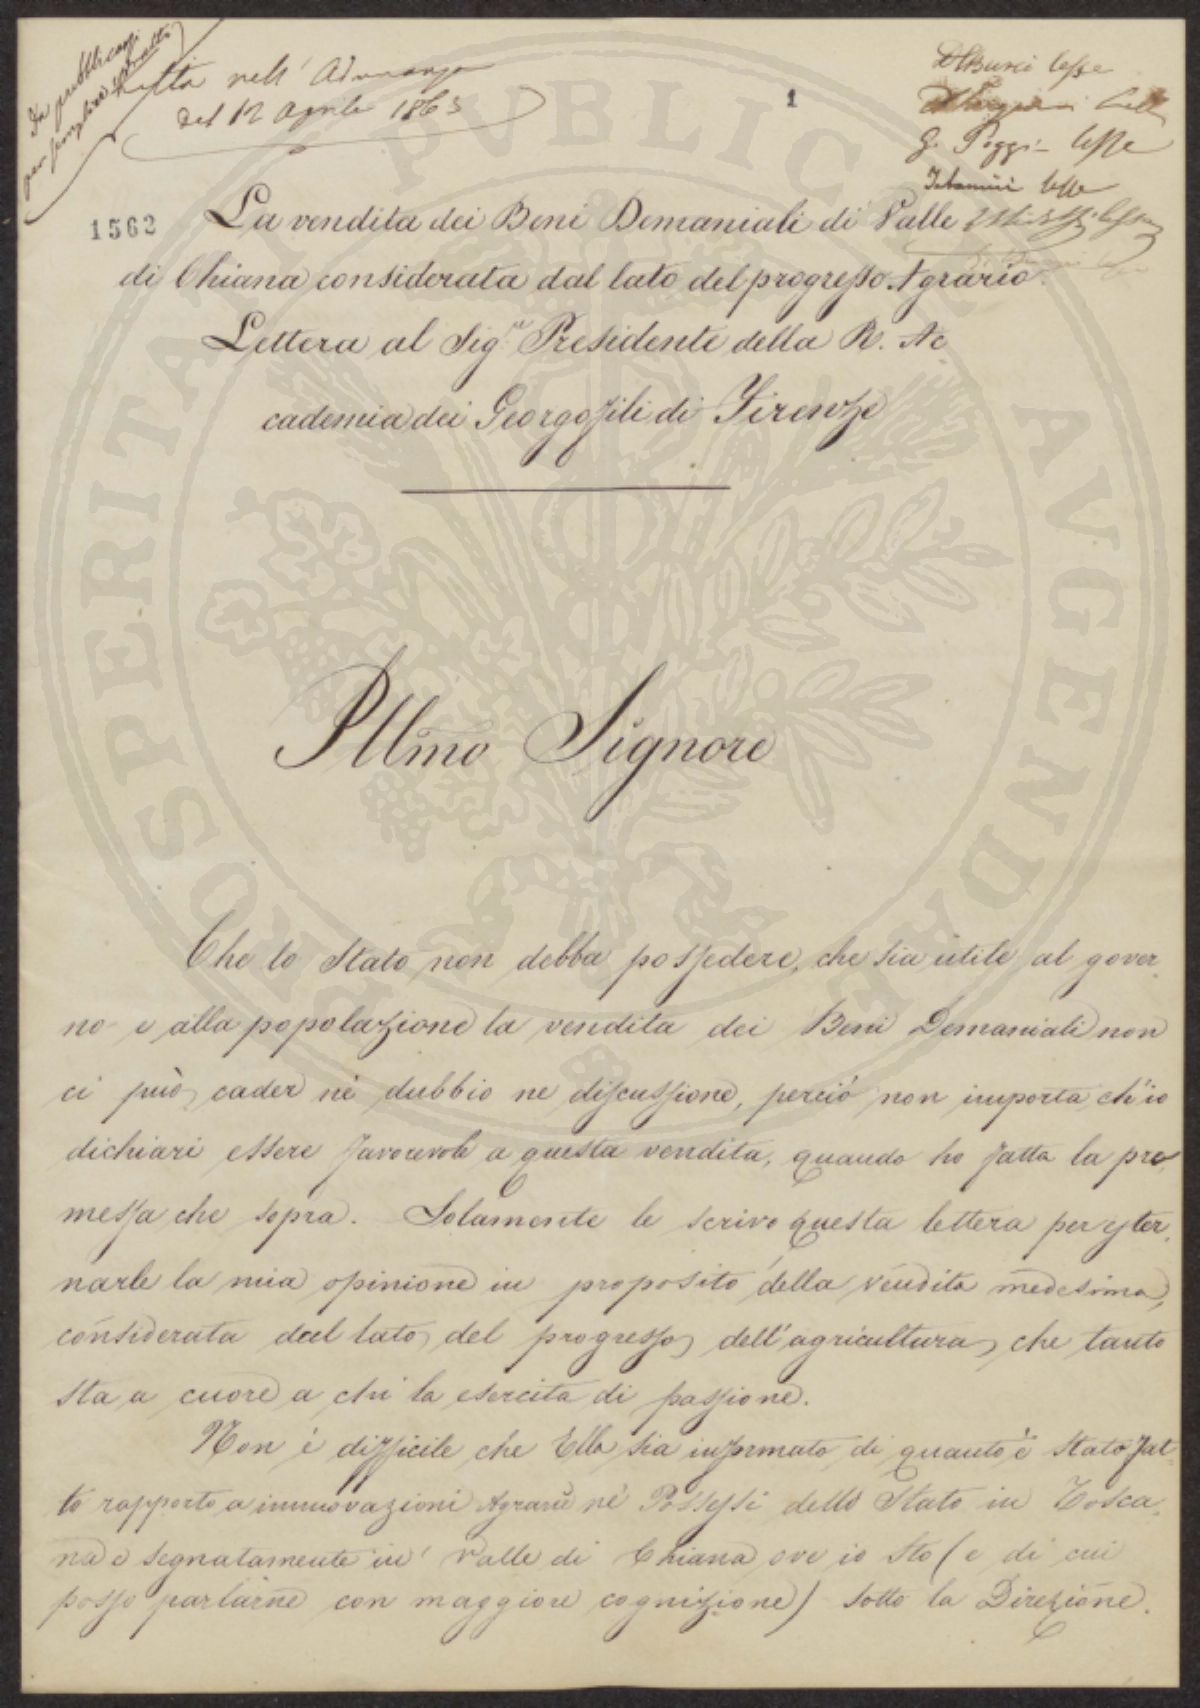 Da pubblicarsi
per
Letta nell' Adunanza
del 12 Aprile 1863
1
lesse
G. Poggi lesse
lesse
1562
La vendita dei Beni Demaniali di Valle
di Chiana considerata dal lato del progresso Agrario.
Lettera al Sig.re Presidente della R. Ac
cademia dei Georgofili di Firenze
Illmo Signore
Che lo Stato non debba possedere, che sia utile al gover
no e alla popolazione la vendita dei Beni Demaniali non
ci può cader nè dubbio ne discussione, perciò non importa ch'io
dichiari essere favorevole a questa vendita, quando ho fatta la pre
messa che sopra. Solamente le scrivo questa lettera per ester
narle la mia opinione in proposito della vendita medesima,
considerata dal lato del progresso dell'agricultura, che tanto
sta a cuore a chi la esercita di passione.
Non è difficile che Ella sia informato di quanto è stato fat
to rapporto a innuovazioni Agrarie nè Possessi dello Stato in Tosca
na e segnatamente in Valle di Chiana ove io sto (e di cui
posso parlarne con maggiore cognizione) sotto la Direzione
PROSPERITATI PVBLICAE AVGENDAE